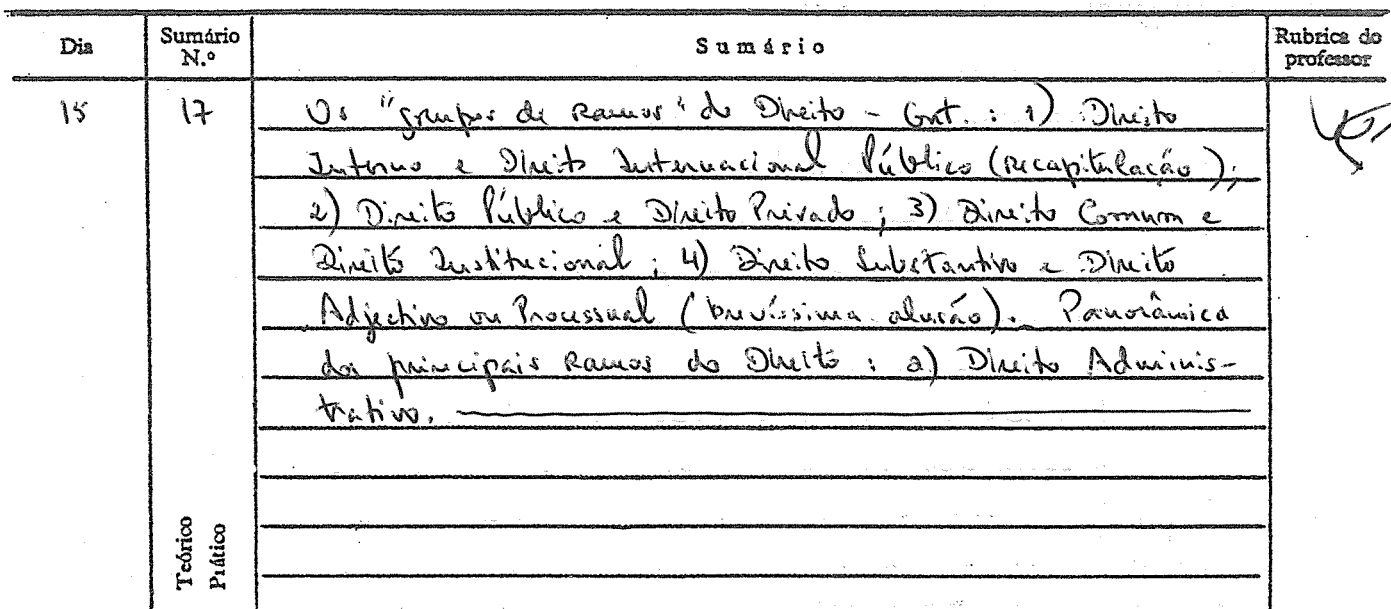 Dia
Sumário N.º
Sumário
Rubrica do professor
15
17
Os "grupos de ramos" do Direito - Cont. : 1) Direito
Interno e Direito Internacional Público (recapitulação);
2) Direito Público e Direito Privado ; 3) Direito Comum e
Direito Institucional ; 4) Direito Substantivo e Direito
Adjectivo ou Processual (brevíssima alusão). Panorâmica
dos principais Ramos do Direito : a) Direito Adminis-
trativo.
Teórico
Prático